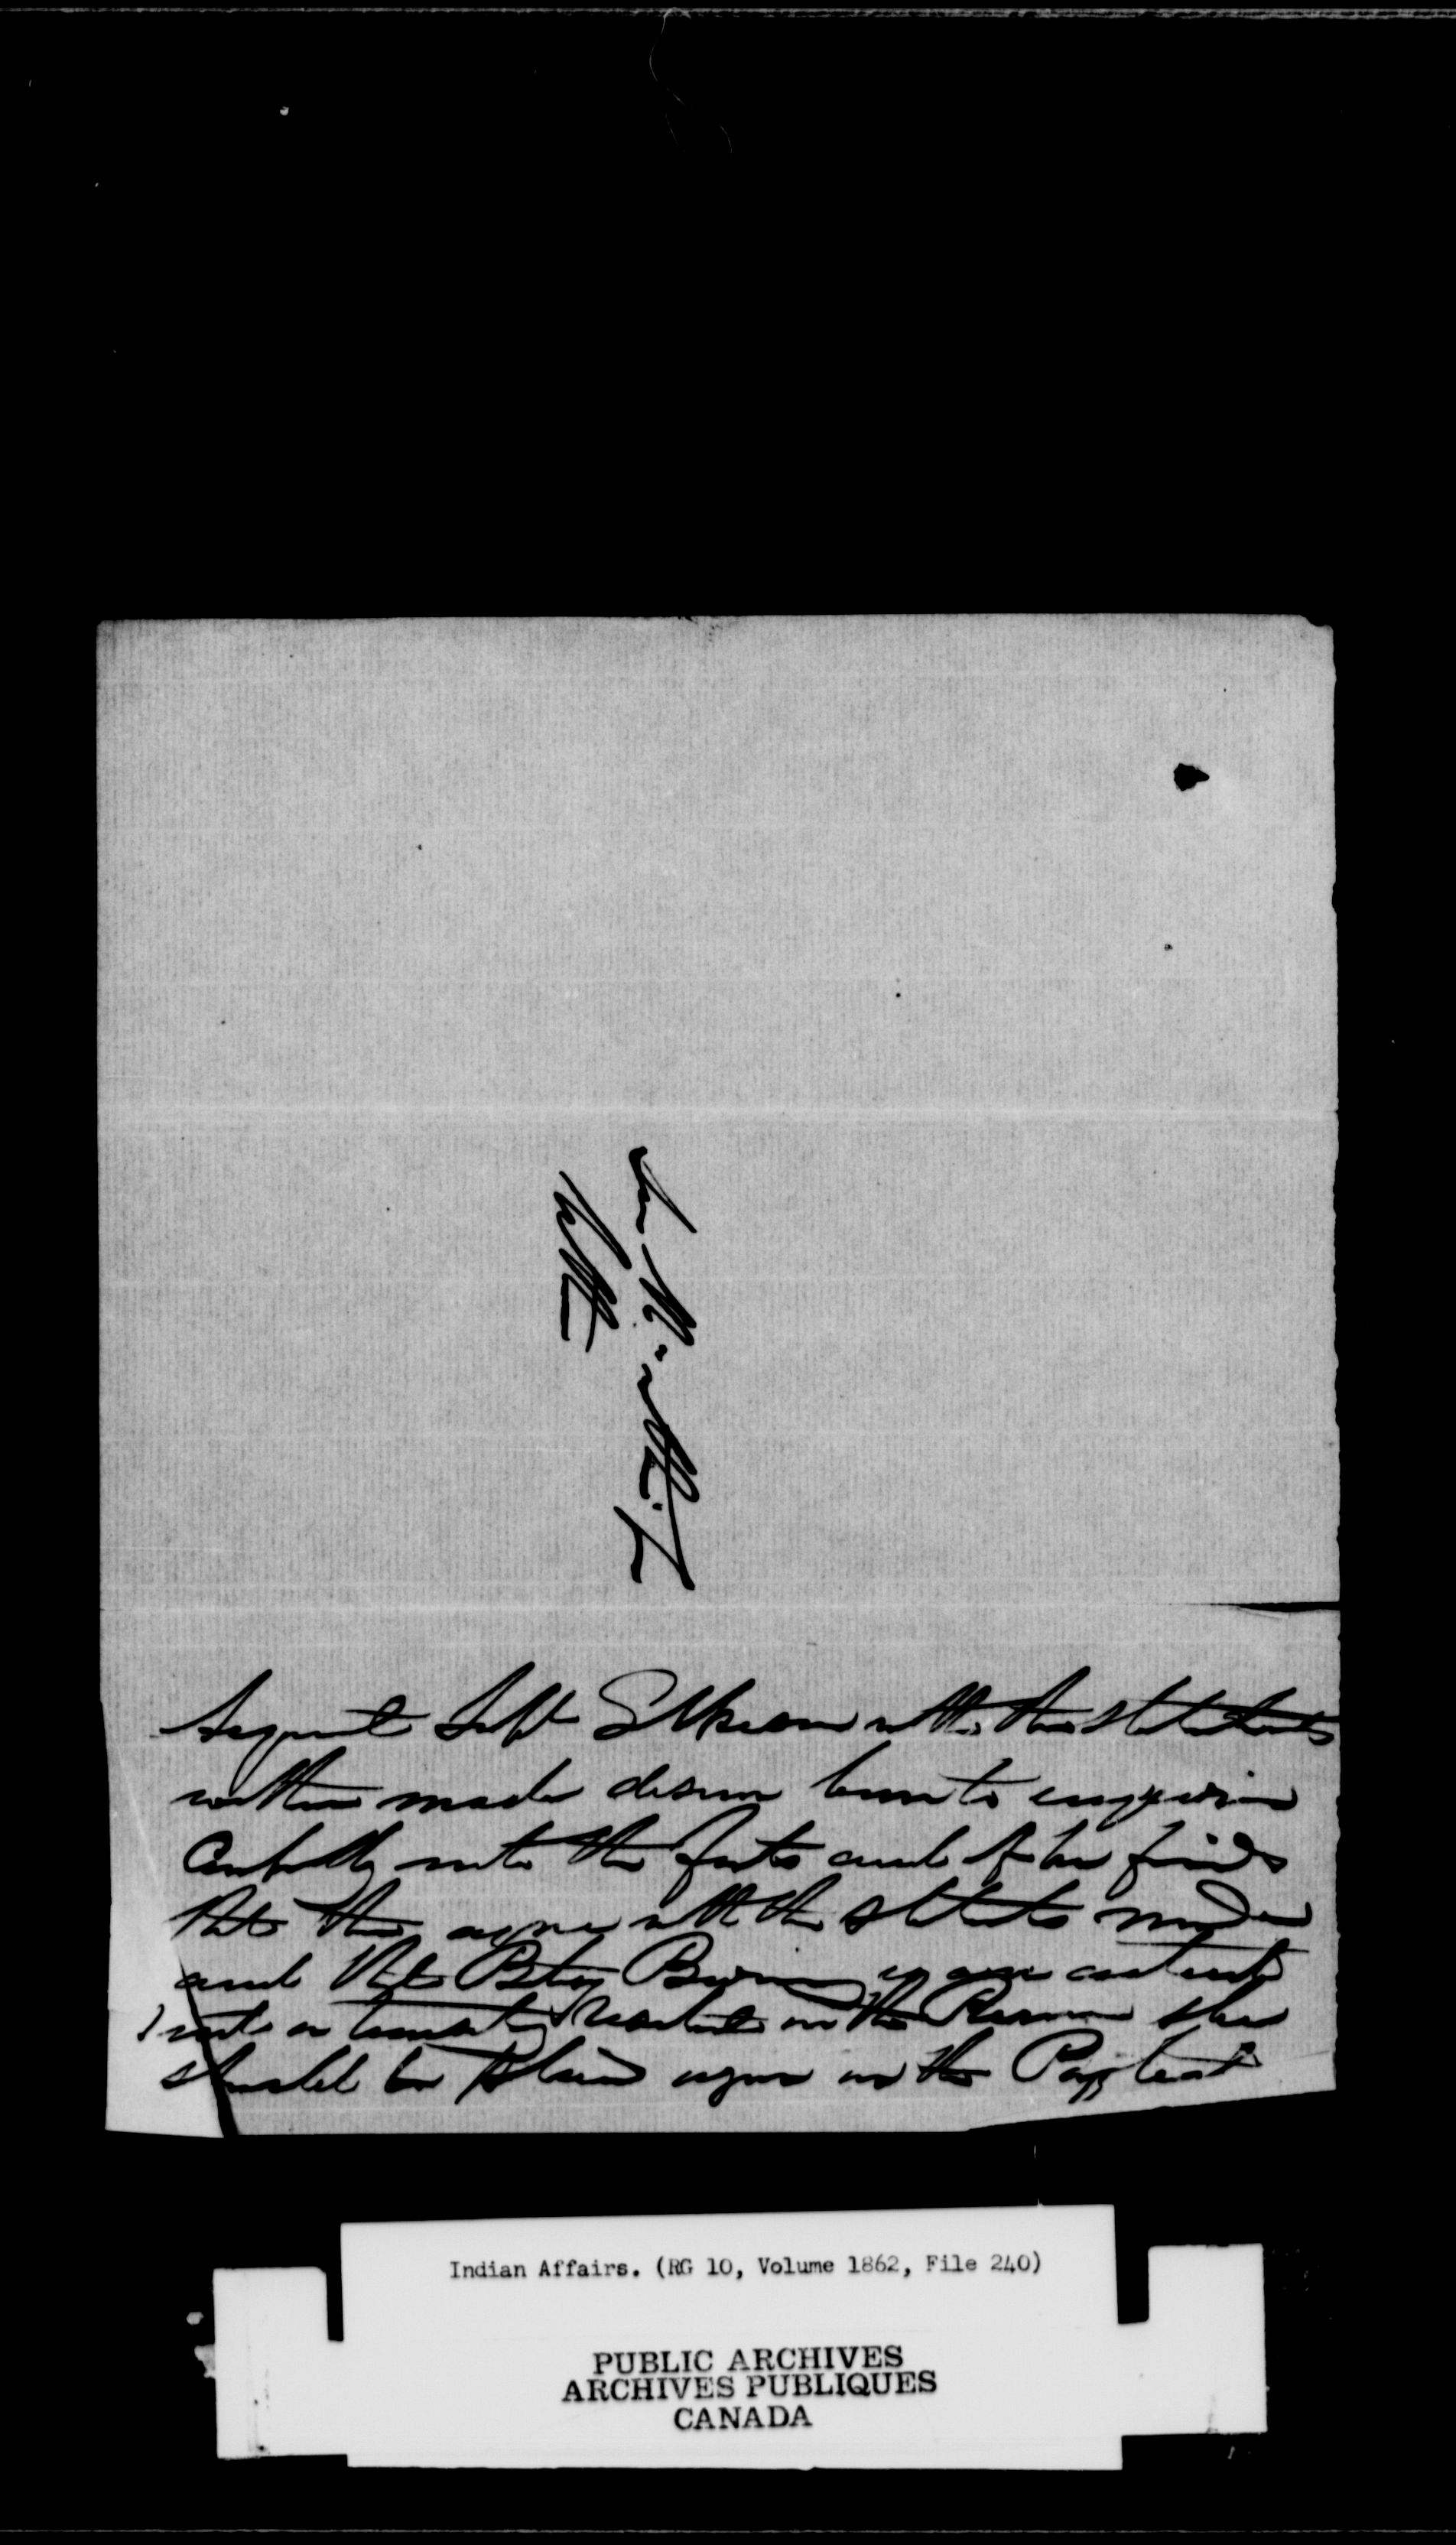 Acquaint Supt Gilkison with the statements
within made desire him to enquire
carefully into the facts and if he finds
that they agree with the statements made
and that Betsy Burning is a constant
not a transitory Resident on the Reserve she
should be placed again on the Pay list
Indian Affairs. (RG 10, Volume 1862, File 240)
PUBLIC ARCHIVES
ARCHIVES PUBLIQUES
CANADA